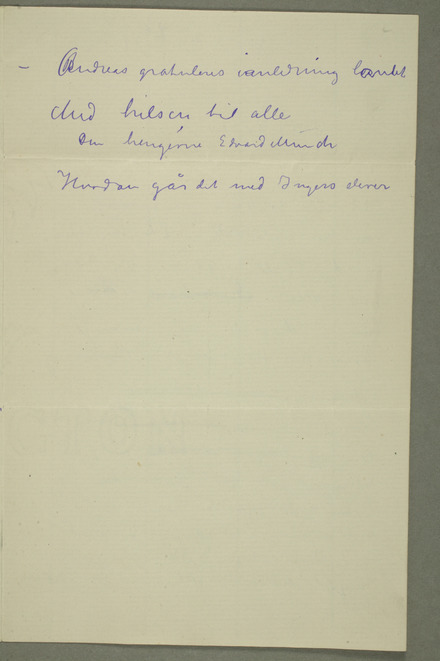 – Andreas gratuleres i anledning
Med hilsen til alle
Din hengivne Edvard Munch
Hvordan går det med Ingers elever